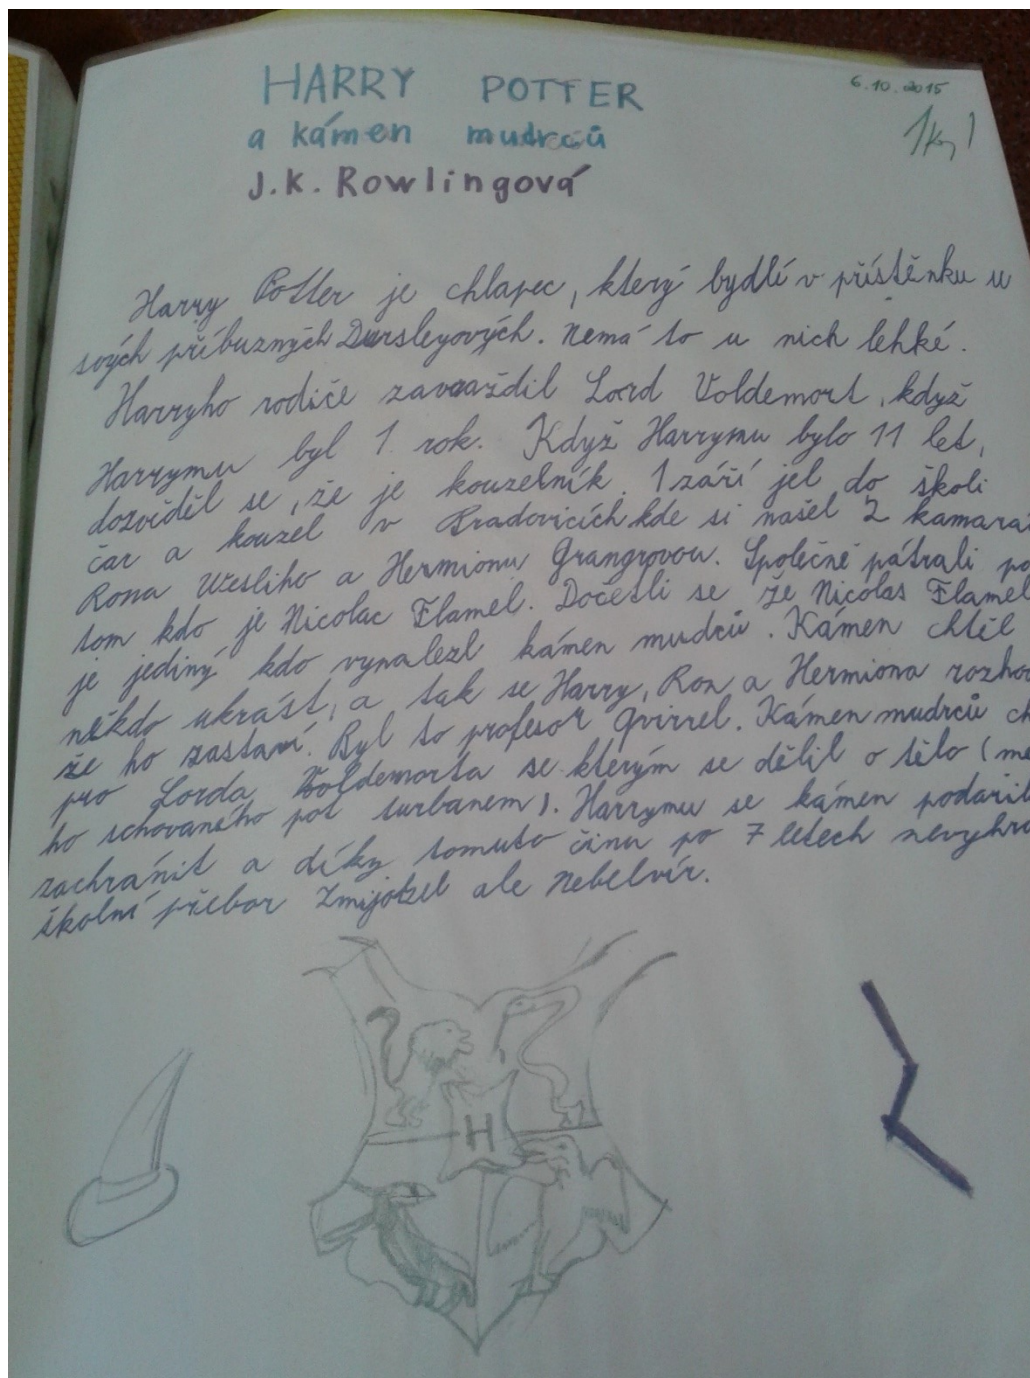 HARRY POTTER
6.10.2015
a kámen mudrců
J.K. Rowlingová
Harry Potter je chlapec, který bydlí v přístěnku u
svých příbuzných Dursleyových. Nemá to u nich lehké.
Harryho rodiče zavraždil Lord Voldemort, když
Harrymu byl 1 rok. Když Harrymu bylo 11 let,
dozviděl se, že je kouzelník. 1 září jel do školi
čar a kouzel v Bradovicích kde si našel 2 kamará
Rona Weslího a Hermionu Grangrovou. Společně pátrali po
tom kdo je Nicolac Flamel. Dočetli se že Nicolas Flamel
je jediný kdo vynalezl kámen mudrců. Kámen chtěl
někdo ukrást, a tak se Harry, Ron a Hermiona rozhod
že ho zastaví. Byl to profesor Qvirrel. Kámen mudrců ch
pro Lorda Voldemorta se kterým se dělil o tělo (mě
ho schovaného pot turbanem). Harrymu se kámen podařil
zachránit a díky tomuto činu po 7 letech nevyhrá
školní přebor Zmijozel ale Nebelvír.
H